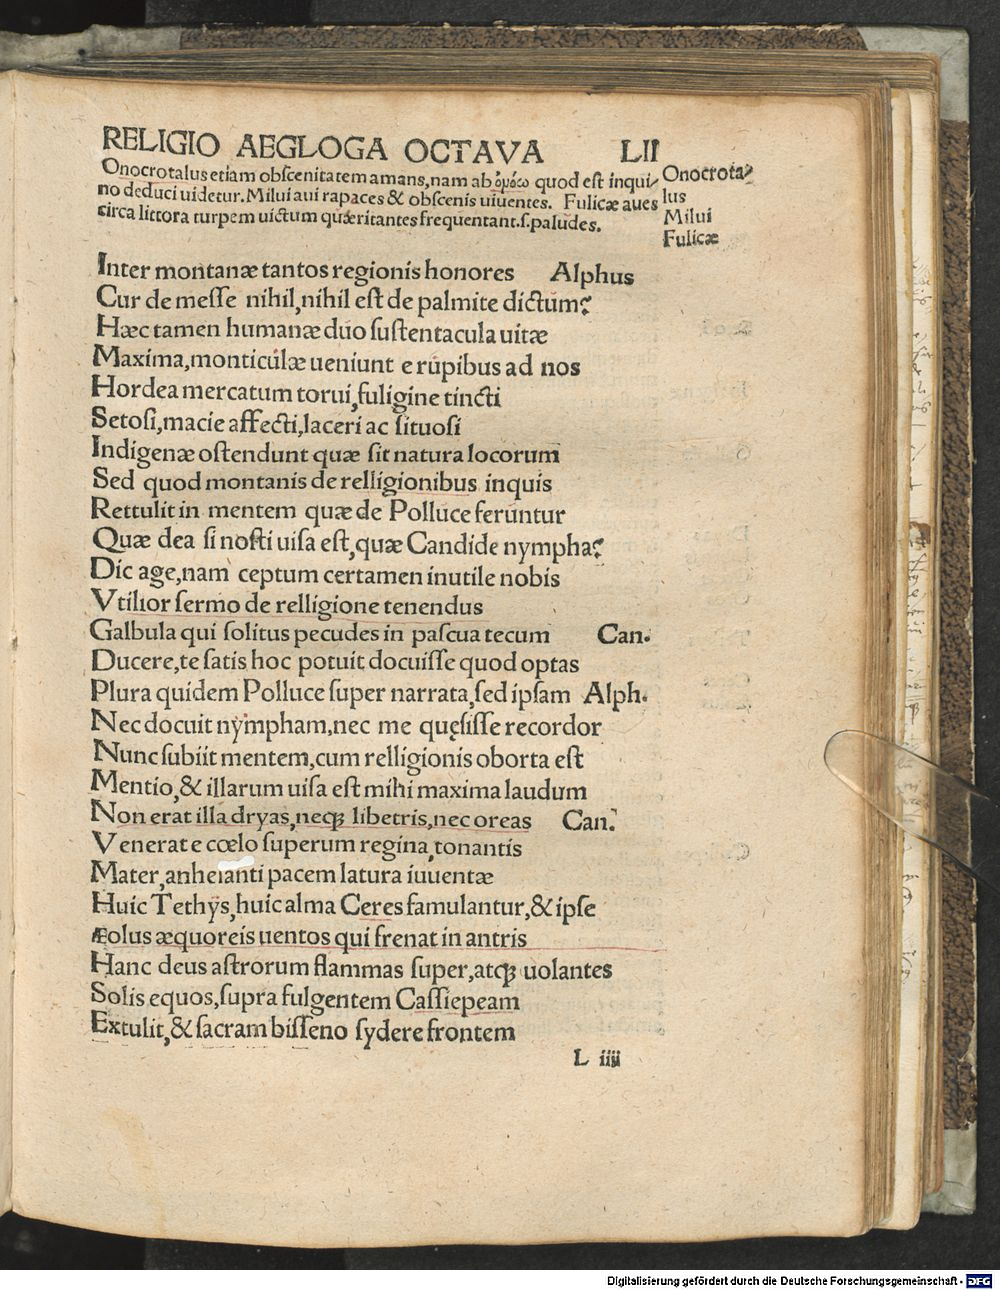 RELIGIO AEGLOGA OCTAVA LII
Onocrotalus etiam obſcenitatem amans, nam ab quod eſt inqui/
no deduci uidetur. Milui aui rapaces & obſcenis uiuentes. Fulicæ aues
circa littora turpem uictum quæritantes frequentant.ſ.paludes.
Onocrota/
lus
Milui
Fulicæ
Inter montanæ tantos regionis honores Alphus
Cur de meſſe nihil, nihil eſt de palmite dictum?
Hæc tamen humanæ duo ſuſtentacula uitæ
Maxima, monticulæ ueniunt e rupibus ad nos
Hordea mercatum torui, fuligine tincti
Setoſi, macie affecti, laceri ac ſituoſi
Indigenæ oſtendunt quæ ſit natura locorum
Sed quod montanis de relligionibus inquis
Rettulit in mentem quæ de Polluce feruntur
Quæ dea ſi noſti uiſa eſt, quæ Candide nympha?
Dic age, nam ceptum certamen inutile nobis
Vtilior ſermo de relligione tenendus
Galbula qui ſolitus pecudes in paſcua tecum Can.
Ducere, te ſatis hoc potuit docuiſſe quod optas
Plura quidem Polluce ſuper narrata, ſed ipſam Alph.
Nec docuit nympham, nec me quęſiſſe recordor
Nunc ſubiit mentem, cum relligionis oborta eſt
Mentio, & illarum uiſa eſt mihi maxima laudum
Non erat illa dryas, neqꝫ libetris, nec oreas Can.
Venerat e cœlo ſuperum regina, tonantis
Mater, anhelanti pacem latura iuuentæ
Huic Tethys, huic alma Ceres famulantur, & ipſe
Æolus æquoreis uentos qui frenat in antris
Hanc deus aſtrorum flammas ſuper, atqꝫ uolantes
Solis equos, ſupra fulgentem Caſſiepeam
Extulit, & ſacram biſſeno ſydere frontem
L iiii
Digitalisierung gefördert durch die Deutsche Forschungsgemeinschaft - DFG